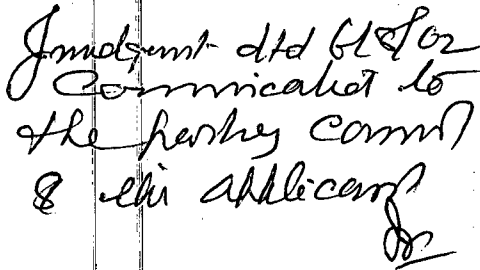 Jmudgment dtd
Communicated to
the partys counsl
& the applicant